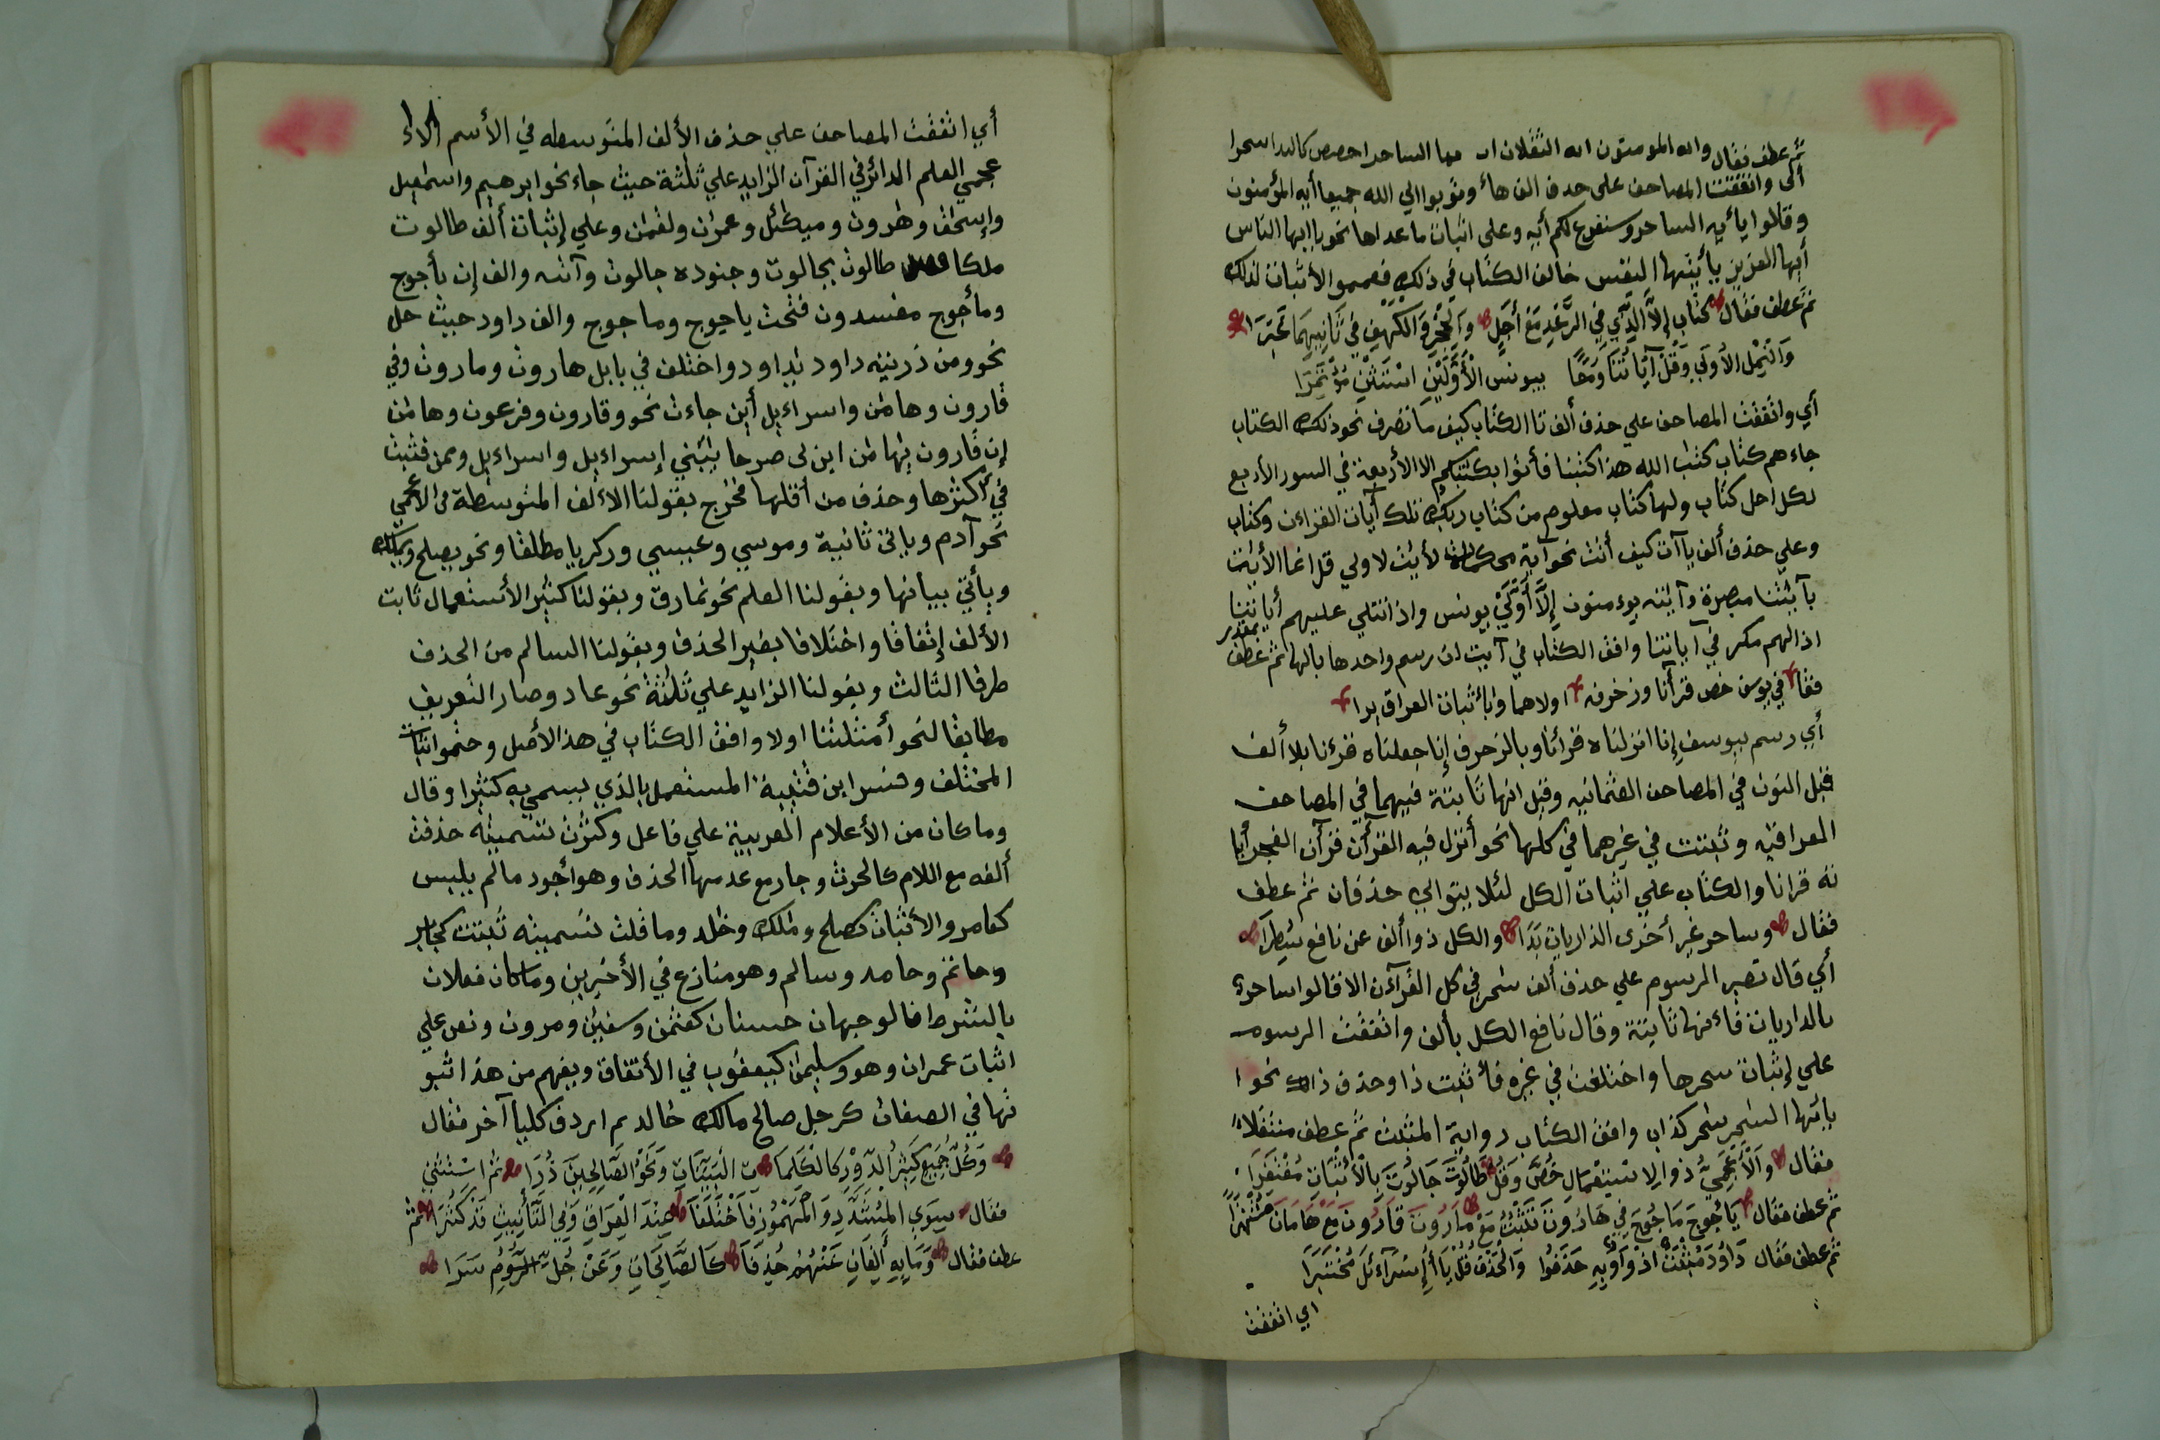 ثم عطف فقال وايه المومنون ايه الثقلان ايه الساحر احصص كالبدا سحرا
أي واتفقت المصاحف على حذف الف هاء وتوبوا الي الله جميعا أيه المؤمنون
وقالوا يأيه الساحر وسنفرغ لكم أيه وعلى اثبات ما عداها نحو ياايها الناس
أيها العزيز يأيتها النفس خالف الكتاب في ذلك فعمموا الأثبات لذلك
ثم عطف فقال كتاب إلا الذي في الرعد مع أجل والحجر والكهف في ثانيهما غبرا
والنمل الأولي وقل آياتنا ومعا بيونس الأولين استثن مؤتمرا
أي واتفقت المصاحف علي حذف ألف تا الكتاب كيف ما تصرف نحو ذلك الكتاب
جاءهم كتاب كتب الله هذا كتبنا فأتوا بكتبكم الا الأربعة في السور الأربع
لكل اجل كتاب ولها كتاب معلوم من كتاب ربك تلك آيات القراءن وكتاب
وعلي حذف ألف يا آت كيف أتت نحو آية لأيت لاولي قل انما الأيت
بآيتنا مبصرة وآيته يوءمنون إلا أولي يونس واذا تتلي عليهم أياتنا
اذا لهم مكر في آياتنا وافق الكتاب في آيت ان رسم واحدها بالها ثم عطف
فقا في يوسف خص قرأنا وزخرفه اولاهما وبأثبات العراق يرا
أي رسم بيوسف إنا انزلناه قرانا وبالزخرف إنا جعلناه قرءنا بلا ألف
قبل النون في المصاحف العثمانيه وقيل انها ثابتة فيهما في المصاحف
العراقيه وثبتت في غيرهما في كلها نحو أنزل فيه القرأن قرآن الفجر أيا
ته قرانا والكتاب علي اثبات الكل لئلا يتوالي حذفان ثم عطف
فقال وساحر غير أخرى الذاريات بدا والكل ذوا ألف عن نافع سطرا
أي قال نصير المرسوم علي حذف ألف سحر في كل القرآن الا قالوا ساحر
بالداريات فاءنها ثابتة وقال نافع الكل بألف واتفقت الرسوم
علي إثبات سحرها واختلفت في غيره فأثبت ذا وحذف ذاك نحو
ياأيها السحر سحر كذاب وافق الكتاب رواية المثلث ثم عطف منتقلا
فقال والأعجمي ذوا لاستعمال خص وقل طالوت جالوت بالأثبات مفتقرا
ثم عطف فقال يأجوج ماجوج في هاروت تثبت مع ماروت قارون مع هامان مشتهرا
ثم عطف فقال داود مثبت اذ واو به حذفوا والحذف قل بيا إسراءئل مختبرا
اي اتفقت
أي اتفقت المصاحف علي حذف الألف المتوسطه في الأسم الا
عجمي العلم الدائر في القرآن الزايد علي ثلثة حيث جاء نحو ابرهيم واسمعيل
وإسحق وهرون وميكئل وعمرن ولقمن وعلي إثبات ألف طالوت
ملكا فصل طالوت بجالوت وجنوده جالوت وآتىه والف إن يأجوج
ومأجوج مفسدون فتحت ياجوج وماجوج والف داود حيث حل
نحو ومن ذريته داود يداود واختلف في بابل هاروت وماروت وفي
قارون وهامن واسراءيل أين جاءت نحو وقارون وفرعون وهامن
إن قارون يهامن ابن لى صرحا يبني إسراءيل واسراءيل ومن فثبت
في أكثرها وحذف من أقلها مخرج بقولنا الاءلف المتوسطة في الأعجمي
نحو آدم وياتى ثانية وموسي وعيسي وزكريا مطلقا ونحو يصلح ويملك
ويأتي بيانها وبقولنا العلم نحو نمارق وبقولنا كثير الأستعمال ثابت
الألف إتفاقا واختلافا بقير الحذف وبقولنا السالم من الحذف
طرفا الثالث وبقولنا الزايد علي ثلثة نحو عاد وصار التعريف
مطابقا لنحو أمثلتنا اولا وافق الكتاب في هذا الأصل وحتموا اثبات
المختلف وفسر ابن قتيبة المستعمل بالذي يسمي به كثيرا وقال
وما كان من الأعلام العربية علي فاعل وكثرت تسميته حذفت
ألفه مع اللام كالحرث وجار مع عدمها الحذف وهو أجود ما لم يلبس
كعامر والأثبات كصلح وملك وخلد وما قلت تسميته ثبتت كجابر
وحاتم وحامد وسالم وهو منازع في الأخيرين وما كان فعلان
بالشرط فالوجهان حسنان كعثمن وسفين ومرون ونص علي
اثبات عمران وهو وسليمن كيعقوب في الأتفاق ويفهم من هذا ثبو
تها في الصفات كرجل صالح مالك خالد ثم اردف كليا آخر فقال
وكل جمع كثير الدور كالكلما ت البينات ونحو الصالحين ذرا ثم استثني
فقال سوي المشدد والمهموز فاختلفا عند العراق وفي التأنيث قد كثرا ثم
عطف فقال وما به ألفان عنهم حذفا كالصالحات وعن جل الرسوم سرا